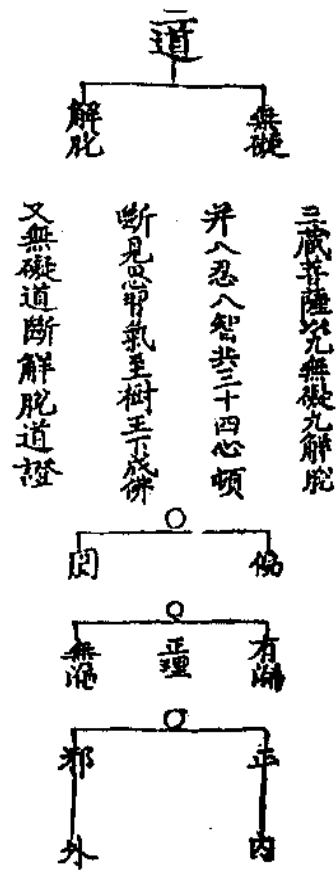 二道
無礙
解脫
三藏菩薩以九無礙九解脫
并八忍八智共三十四心頓
斷見思習氣至樹王下成佛
又無礙道斷解脫道證
○
偏
圓
○
有漏
正理
無漏
○
正
邪
內
外